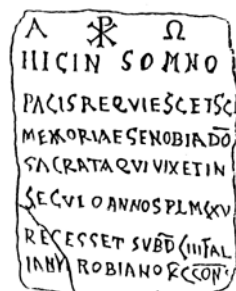 Α ☧ Ω
IIIC IN SOMNO
PACIS REQVIESCET SC
MEMORIAE SENOBIA D̅O̅
SACRATA QVI VIXET IN
SECVLO ANNOS PLM
RECESSET SVB D̅
ROBIANO